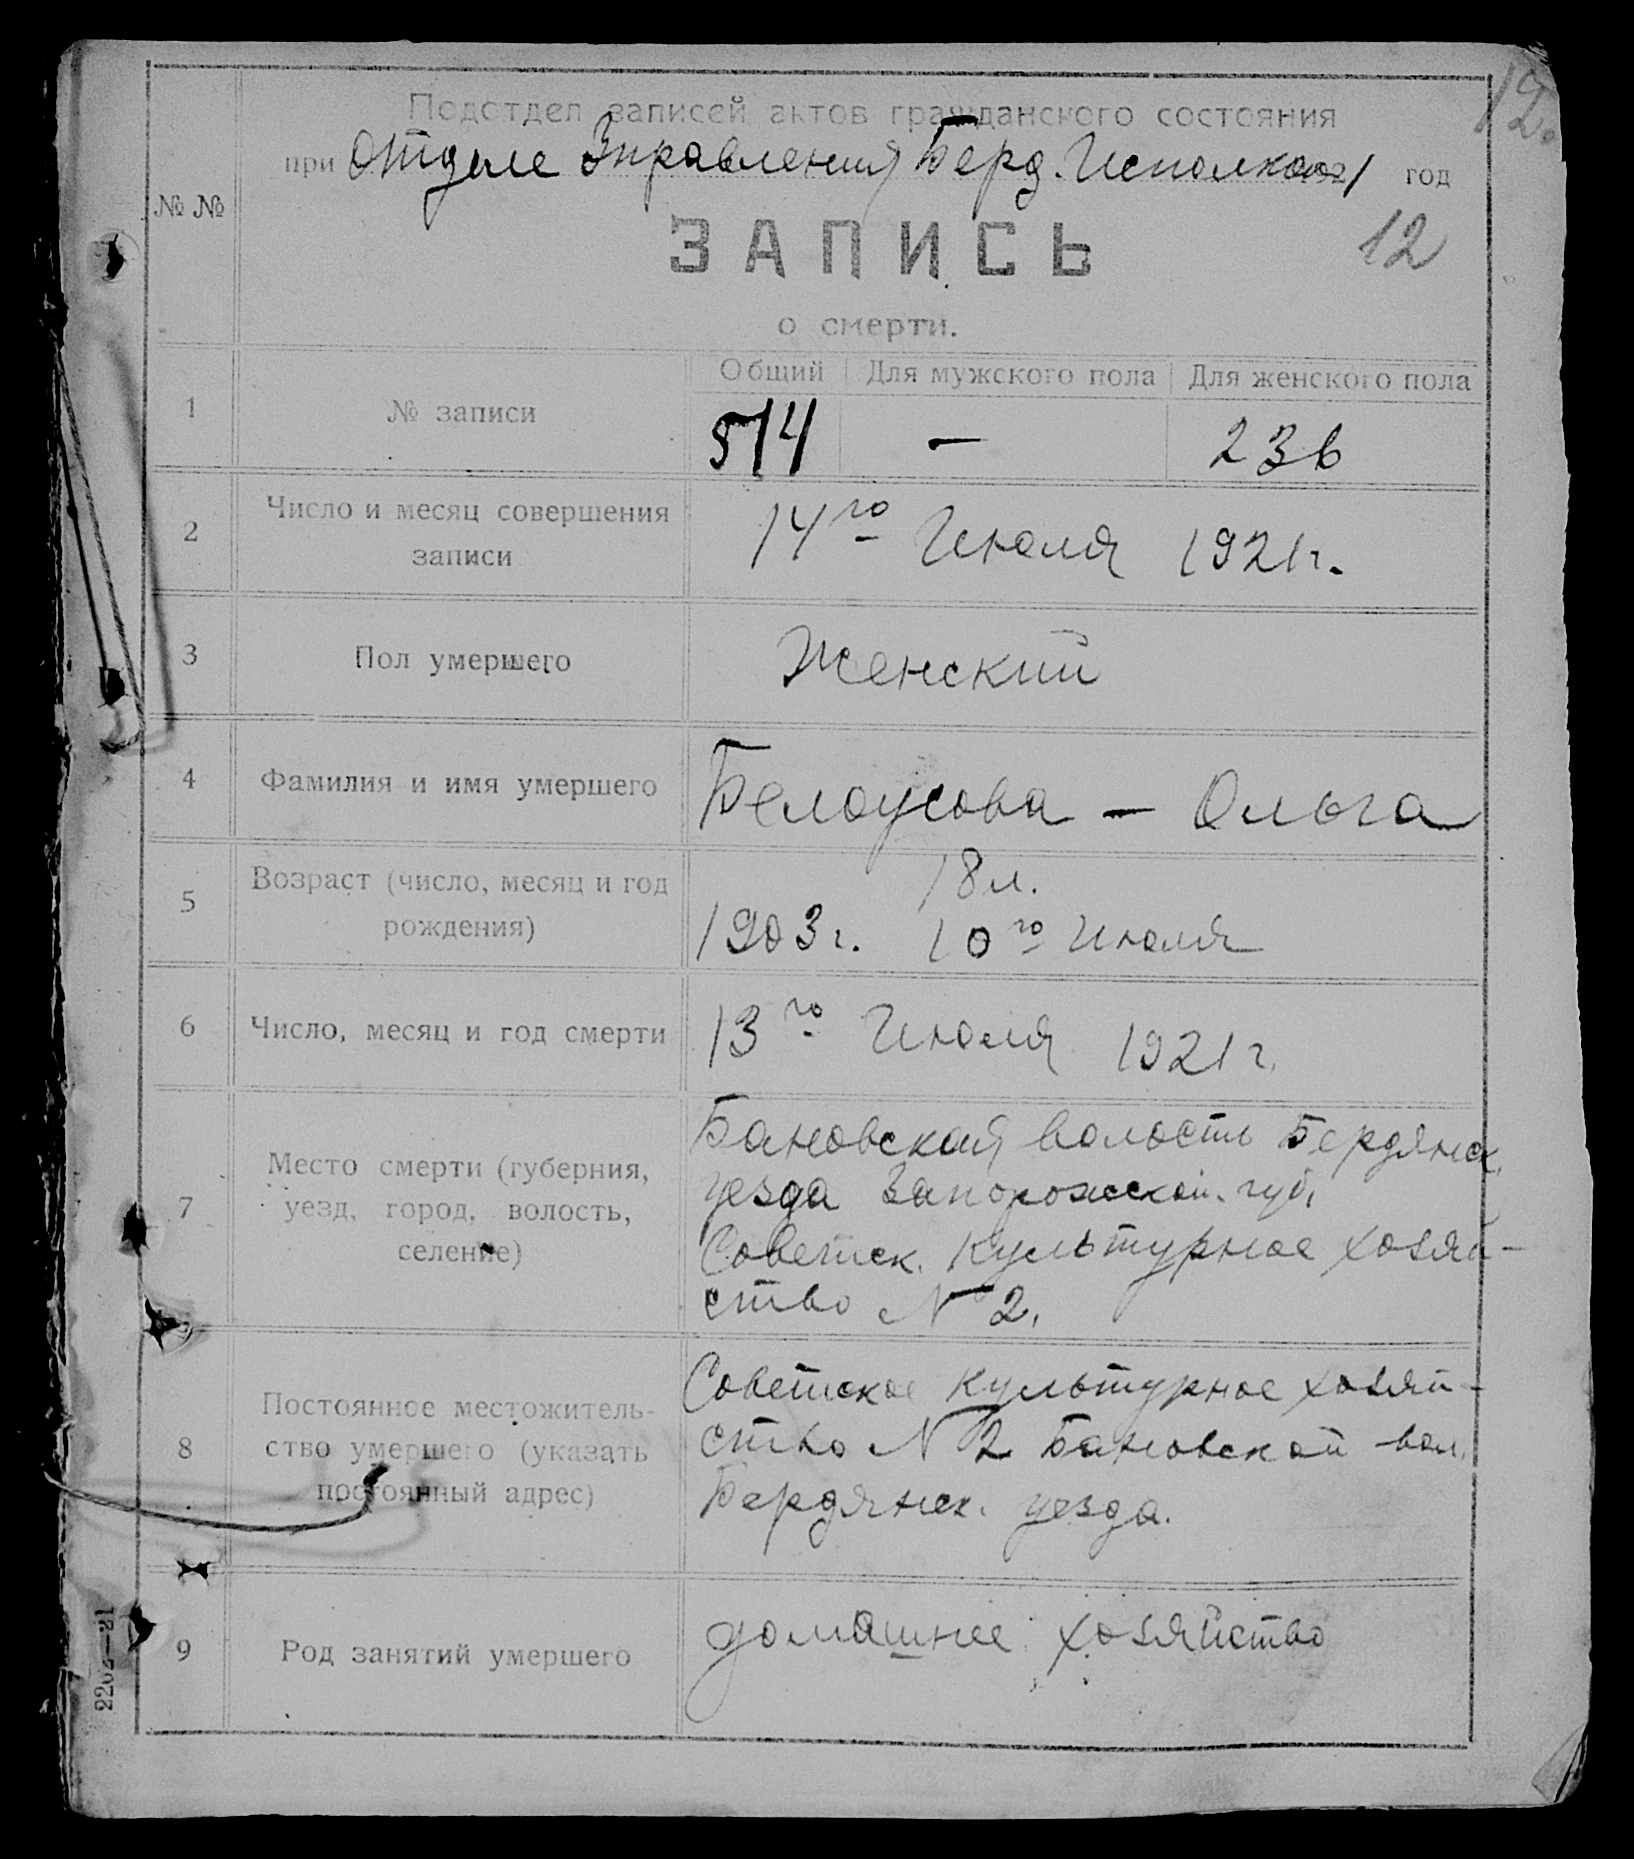 12.
Подотдел записей актов гражданского состояния
при Отделе Управления Берд. Исполкома 1921 год
№ №
ЗАПИСЬ
12
о смерти.
Общий Для мужского пола Для женского пола
1 № записи 514 — 236
2 Число и месяц совершения
записи
14го Июля 1921г.
3 Пол умершего Женский
4 Фамилия и имя умершего Белоусова — Ольга
5 Возраст (число, месяц и год
рождения)
18 л.
1903г. 10го Июля
6 Число, месяц и год смерти 13го Июля 1921г.
7 Место смерти (губерния,
уезд, город, волость,
селение)
Бановская волость Бердянск.
уезда Запорожской. губ.
Советск. Культурное хозяй-
ство N 2.
8 Постоянное местожитель-
ство умершего (указать
постоянный адрес)
Советское Культурное хозяй-
ство N 2 Бановской вол.
Бердянск. уезда.
9 Род занятий умершего домашнее хозяйство